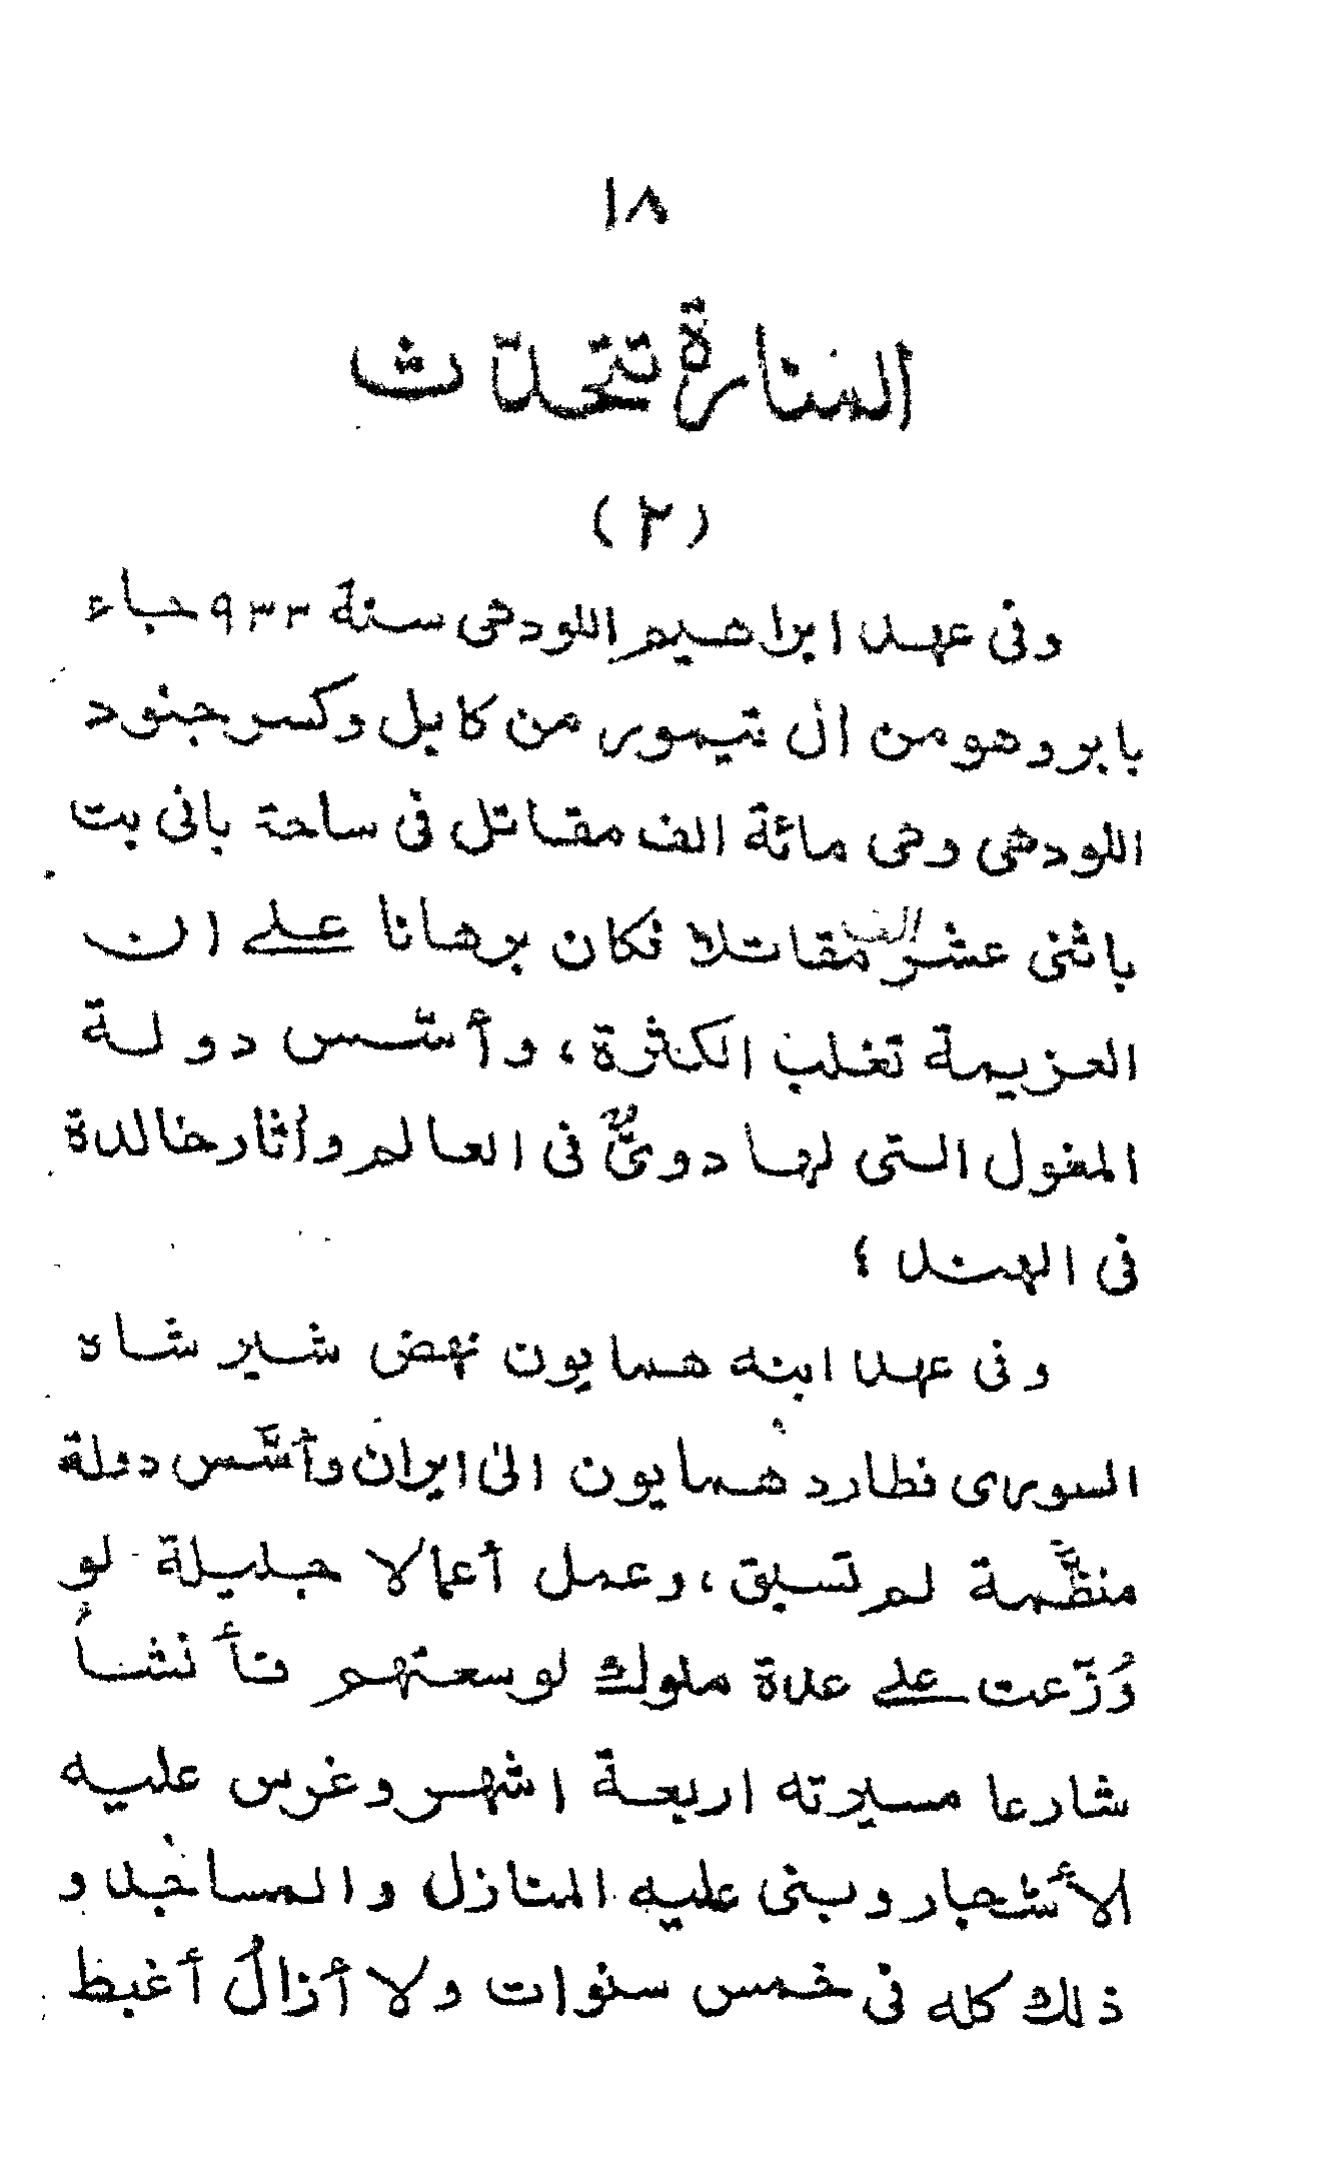 ١٨
المنارة تتحدّث
(٢)
وفى عهد ابراهيم اللودهى سنة ٩٣٣ جاء
بابر وهو من اٰل تيمور من كابل وكسر جنود
اللودهى وهى مائة الف مقاتل فى ساحة بانى بت
باثنى عشر الف مقاتلا فكان برهانا علے ان
العزيمة تغلب الكثرة، وأسّس دولة
المغول التى لها دوىٌّ فى العالم واٰثار خالدة
فى الهند ؛
وفى عهد ابنه همايون نهض شير شاه
السورى فطارد همايون الىٰ ايران وأسَّس دولة
منظَّمة لم تسبق، وعمل أعمالا جليلة لو
وُزّعت علے عدة ملوك لوسعتهم فأنشأ
شارعا مسيرته اربعة اشهر وغرس عليه
الأشجار وبنى عليه المنازل والمساجد و
ذلك كله فى خمس سنوات ولا أزالُ أغبط